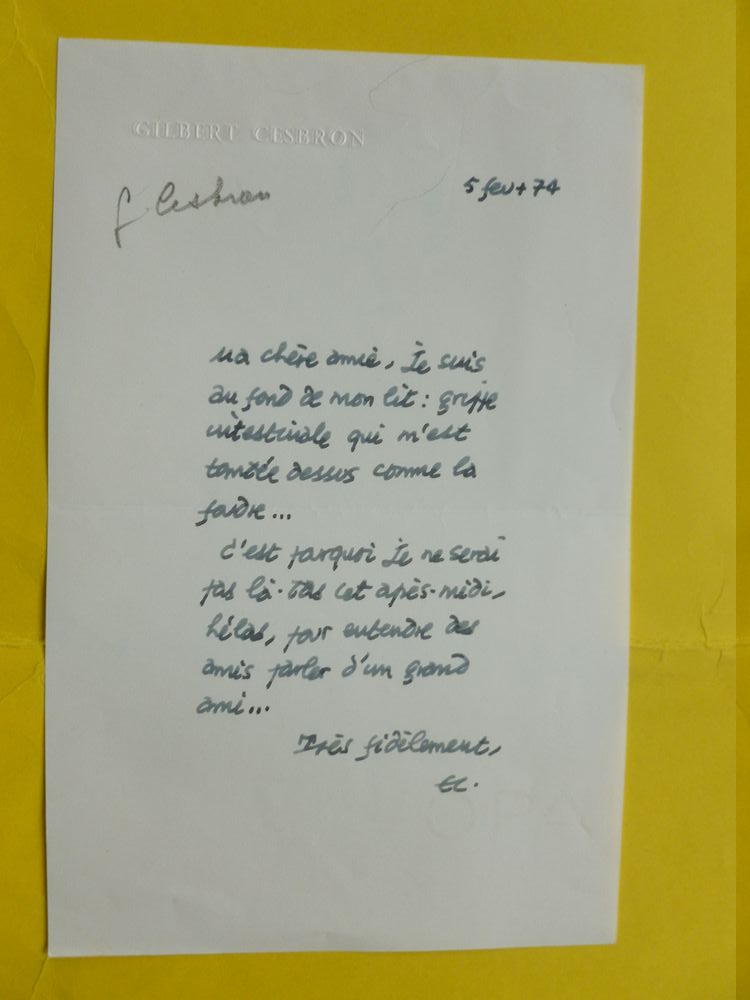 GILBERT CESBRON
G. Cesbron
5 fev + 74
Ma chère amie, Je suis
au fond de mon lit : grippe
intestinale qui m'est
tombée dessus comme la
foudre...
C'est pourquoi Je ne serai
pas là-bas cet après-midi,
hélas, pour entendre des
amis parler d'un grand
ami...
Très fidèlement,
GC.